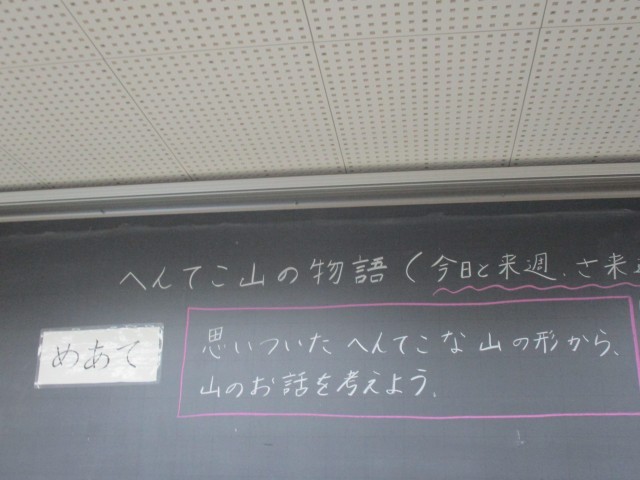 へんてこ山の物語(今日と来週、さ来
めあて
思いついたへんてこな山の形から、
山のお話を考えよう。